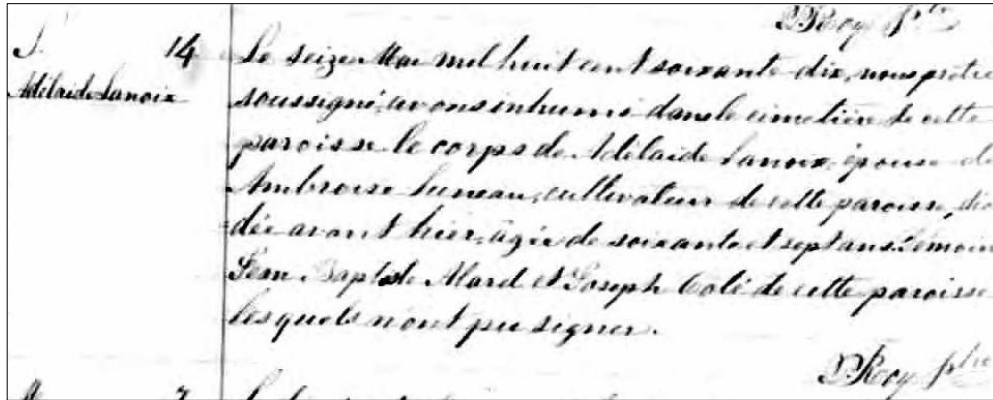 Roy Ptre
S. 14
Adélaïde Lanoix
Le seize Mai mil huit cent soixante-dix, nous prêtre
soussigné, avons inhumé dans le cimetière de cette
paroisse le corps de Adélaïde Lanoix, épouse de
Ambroise Luneau, cultivateur de cette paroisse, décé
dée avant hier, agée de soixante et sept ans. Témoin
Jean Baptiste Alard et Joseph Colé de cette paroisse
lesquels n'ont pu signer.
Roy ptre